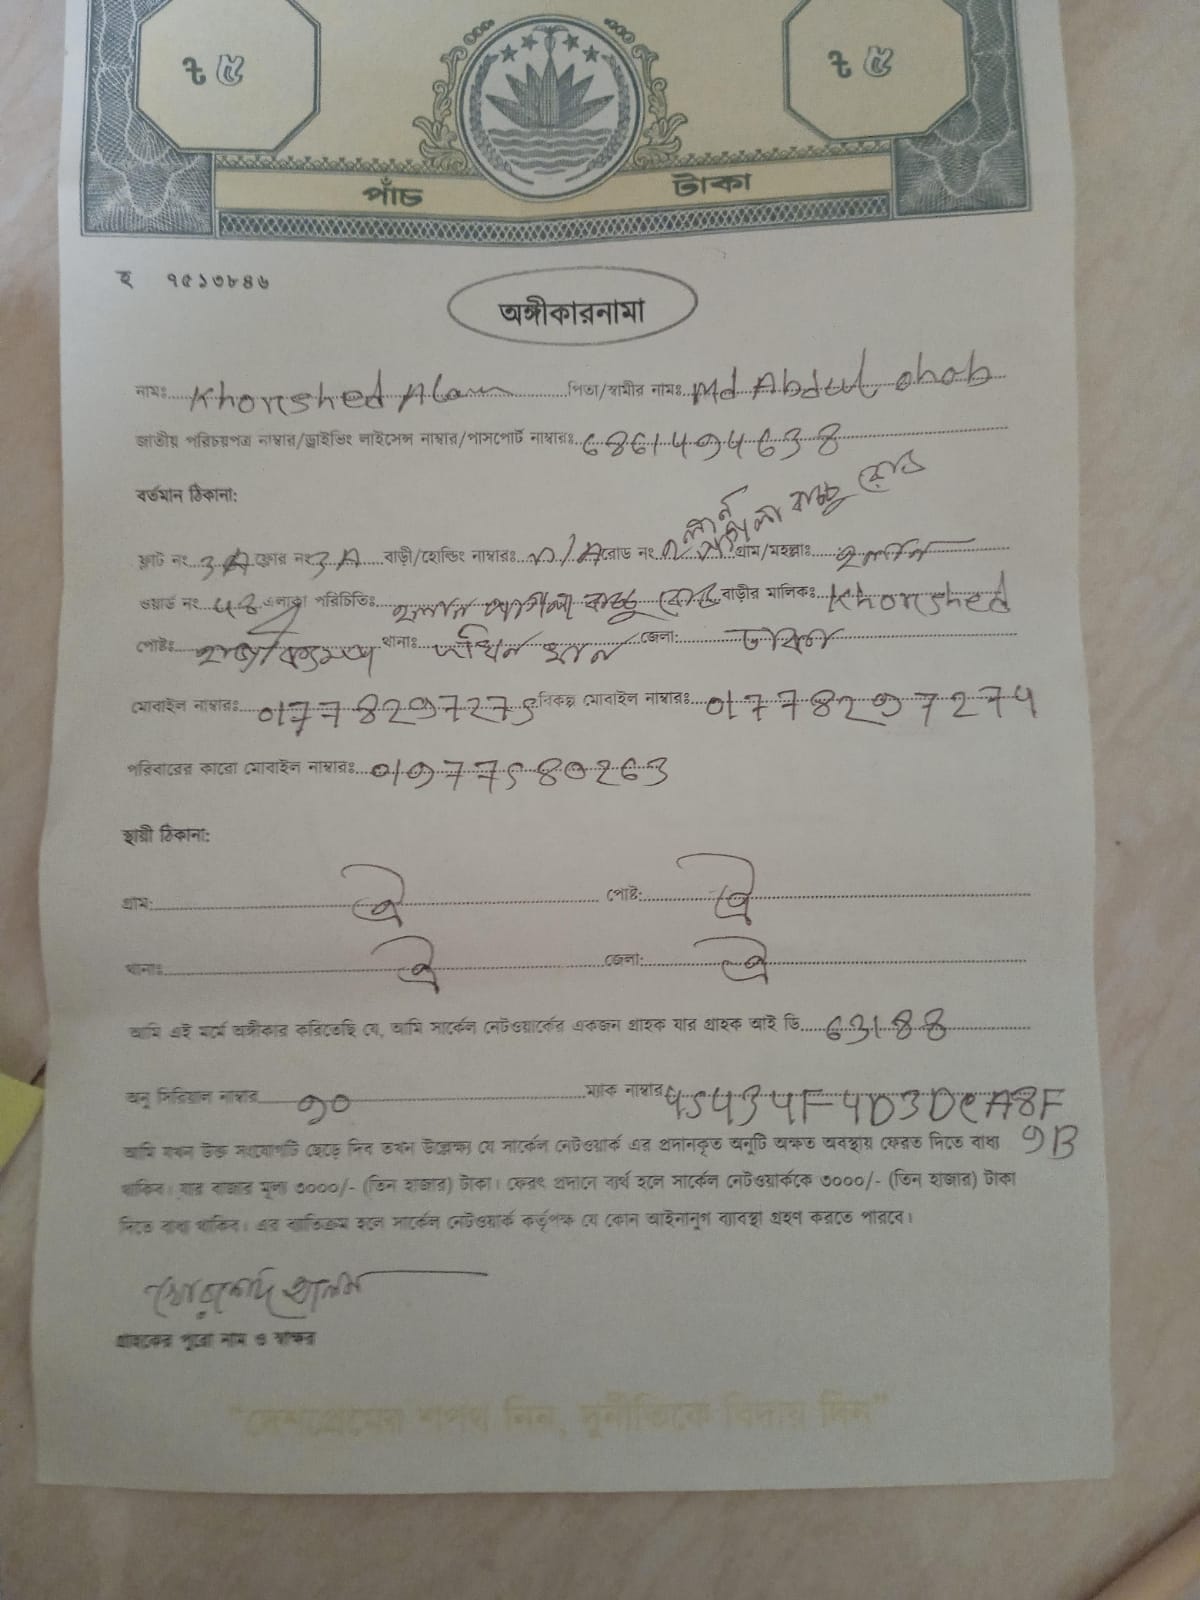 ৳ ৫ ৳ ৫
পাঁচ টাকা
হ ৭৫১৩৮৪৬
অঙ্গীকারনামা
নামঃ Khorshed Alam পিতা/স্বামীর নামঃ Md Abdul ohab
জাতীয় পরিচয়পত্র নাম্বার/ড্রাইভিং লাইসেন্স নাম্বার/পাসপোর্ট নাম্বারঃ 6861494638
বর্তমান ঠিকানা:
ফ্লাট নং 3A ফ্লোর নং 3A বাড়ী/হোল্ডিং নাম্বারঃ রোড নং গ্রাম/মহল্লাঃ
বাচ্চু রোড
ওয়ার্ড নং 48 এলাকা পরিচিতিঃ বাচ্চু রোড বাড়ীর মালিকঃ Khorshed
পোষ্টঃ থানাঃ দক্ষিন খান জেলা: ঢাকা
মোবাইল নাম্বারঃ 01778297275 বিকল্প মোবাইল নাম্বারঃ 01778297274
পরিবারের কারো মোবাইল নাম্বারঃ 01977580263
স্থায়ী ঠিকানা:
গ্রাম: ঐ পোষ্ট: ঐ
থানাঃ ঐ জেলা: ঐ
আমি এই মর্মে অঙ্গীকার করিতেছি যে, আমি সার্কেল নেটওয়ার্কের একজন গ্রাহক যার গ্রাহক আই ডি 63188
অনু সিরিয়াল নাম্বার ম্যাক নাম্বার
আমি যখন উক্ত সংযোগটি ছেড়ে দিব তখন উল্লেক্ষ্য যে সার্কেল নেটওয়ার্ক এর প্রদানকৃত অনুটি অক্ষত অবস্থায় ফেরত দিতে বাধ্য 9B
থাকিব। যার বাজার মূল্য ৩০০০/- (তিন হাজার) টাকা। ফেরৎ প্রদানে ব্যর্থ হলে সার্কেল নেটওয়ার্ককে ৩০০০/- (তিন হাজার) টাকা
দিতে বাধ্য থাকিব। এর ব্যতিক্রম হলে সার্কেল নেটওয়ার্ক কর্তৃপক্ষ যে কোন আইনানুগ ব্যাবস্থা গ্রহণ করতে পারবে।
খোরশেদ আলম
গ্রাহকের পুরো নাম ও স্বাক্ষর
"দেশপ্রেমের শপথ নিন, দুর্নীতিকে বিদায় দিন"